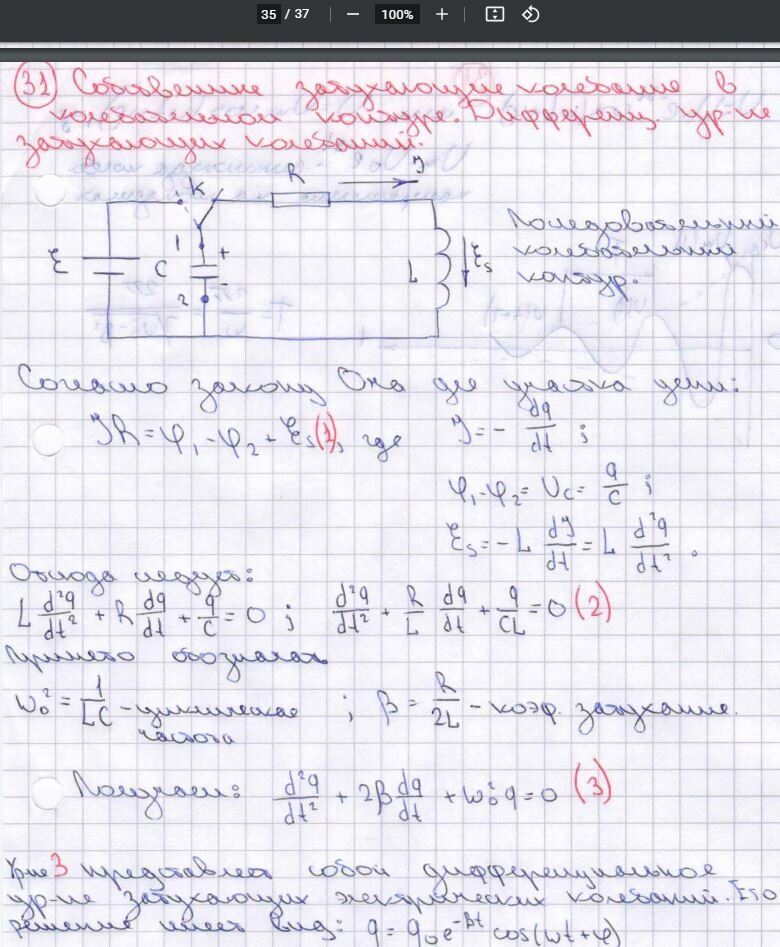 35 / 37 — 100% +
31 Собственные затухающие колебания в
колебательном контуре. Дифференц. ур-ие
затухающих колебаний.
R I
K
1 +
ℰ C L ℰs
2 -
Последовательный
колебательный
контур.
Согласно закону Ома для участка цепи:
IR = φ₁ - φ₂ + ℰs (1), где I = - dq/dt ;
φ₁ - φ₂ = Uc = q/C ;
ℰs = - L dI/dt = L d²q/dt² .
Отсюда следует:
L d²q/dt² + R dq/dt + q/C = 0 ; d²q/dt² + R/L dq/dt + q/CL = 0 (2)
Принято обознача
ω₀² = 1/LC - циклическая ; β = R/2L - коэф. затухание.
частота
Получаем: d²q/dt² + 2β dq/dt + ω₀² q = 0 (3)
Ур-ие 3 представляет собой дифференциальное
ур-ие затухающих электрических колебаний. Его
решение имеет вид: q = q₀e^-βt cos(ωt + φ)